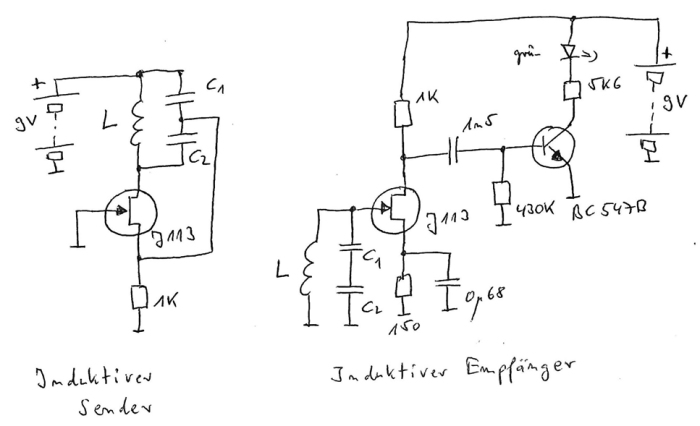 +
9V
L
C1
C2
J113
1K
Induktiver
Sender
grün
5K6
+
9V
1K
1n5
430K
BC547B
J113
L
C1
C2
150
0µ68
Induktiver Empfänger